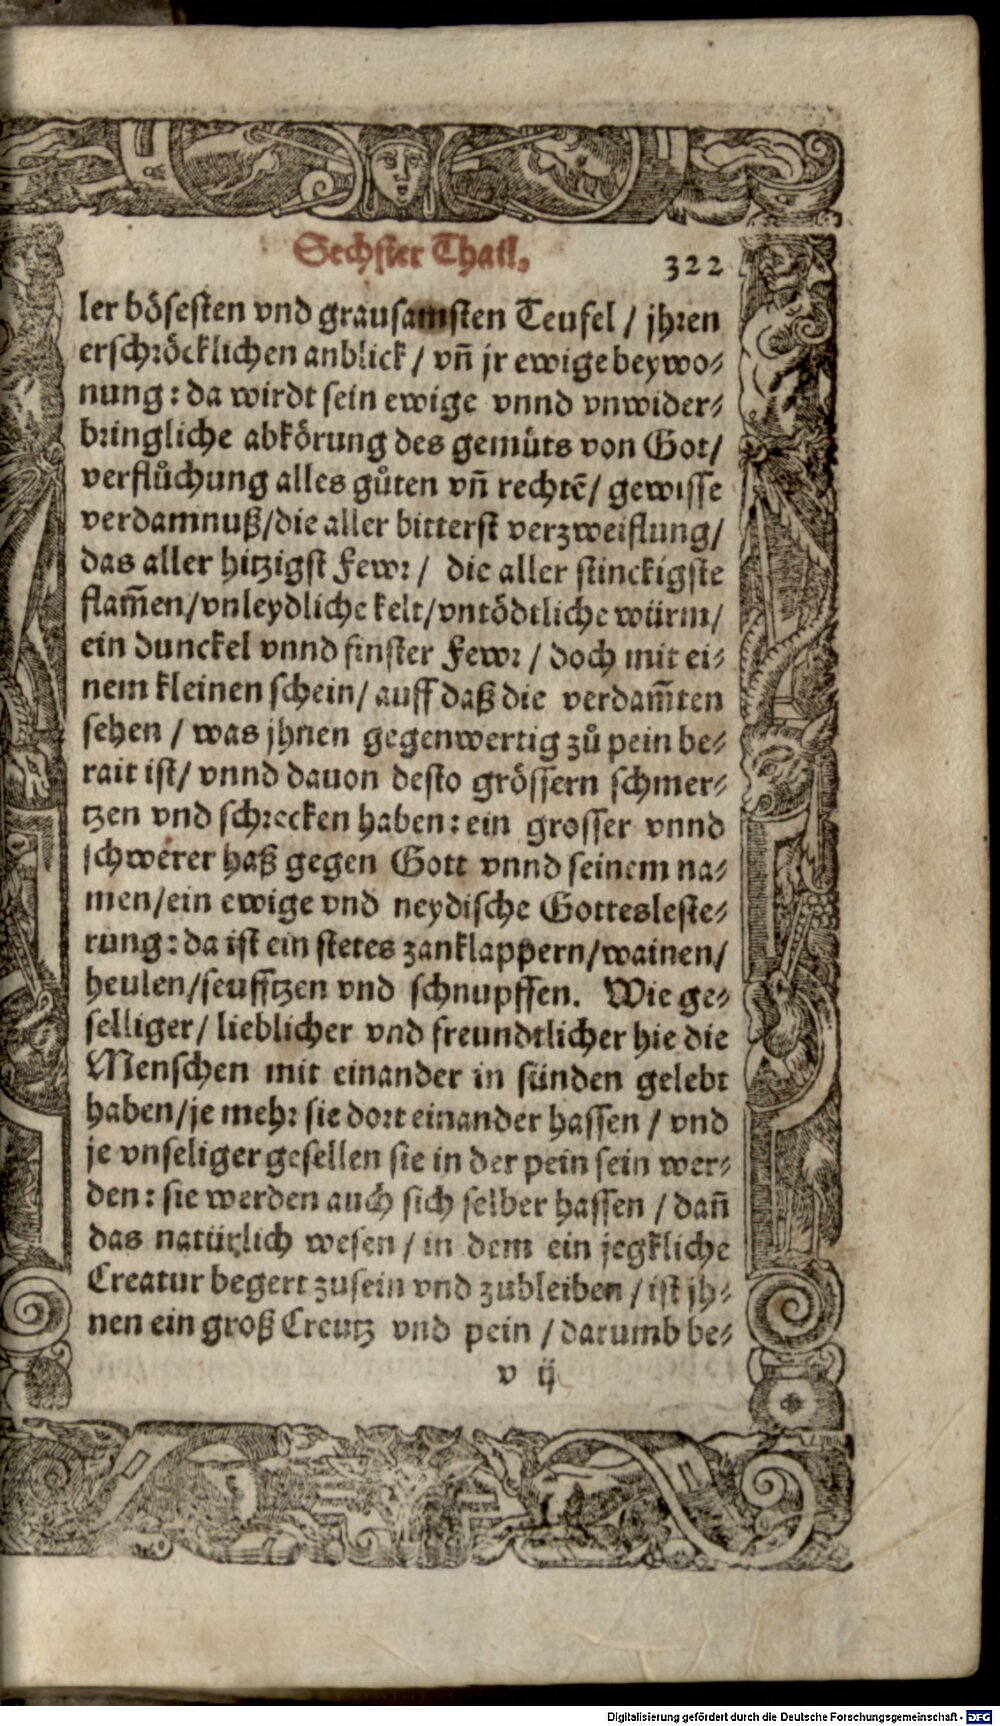 Sechster Thail, 322
ler bösesten vnd grausamsten Teufel / jhren
erschröcklichen anblick / vn̄ jr ewige beywo⸗
nung: da wirdt sein ewige vnnd vnwider⸗
bringliche abkörung des gemüts von Got/
verflůchung alles gůten vn̄ rechtē/ gewisse
verdamnuß/die aller bitterst verzweiflung/
das aller hitzigst Fewr / die aller stinckigste
flam̄en/vnleydliche kelt/vntödtliche würm/
ein dunckel vnnd finster Fewr / doch mit ei⸗
nem kleinen schein/ auff daß die verdam̄ten
sehen / was jhnen gegenwertig zů pein be⸗
rait ist/ vnnd dauon desto grössern schmer⸗
tzen vnd schrecken haben: ein grosser vnnd
schwerer haß gegen Gott vnnd seinem na⸗
men/ein ewige vnd neydische Gottesleste⸗
rung: da ist ein stetes zanklappern/wainen/
heulen/seufftzen vnd schnupffen. Wie ge⸗
selliger/ lieblicher vnd freundtlicher hie die
Menschen mit einander in sünden gelebt
haben/je mehr sie dort einander hassen / vnd
je vnseliger gesellen sie in der pein sein wer⸗
den: sie werden auch sich selber hassen / dan̄
das natürlich wesen / in dem ein jegkliche
Creatur begert zusein vnd zubleiben / ist jh⸗
nen ein groß Creutz vnd pein / darumb be⸗
v ij
Digitalisierung gefördert durch die Deutsche Forschungsgemeinschaft - DFG